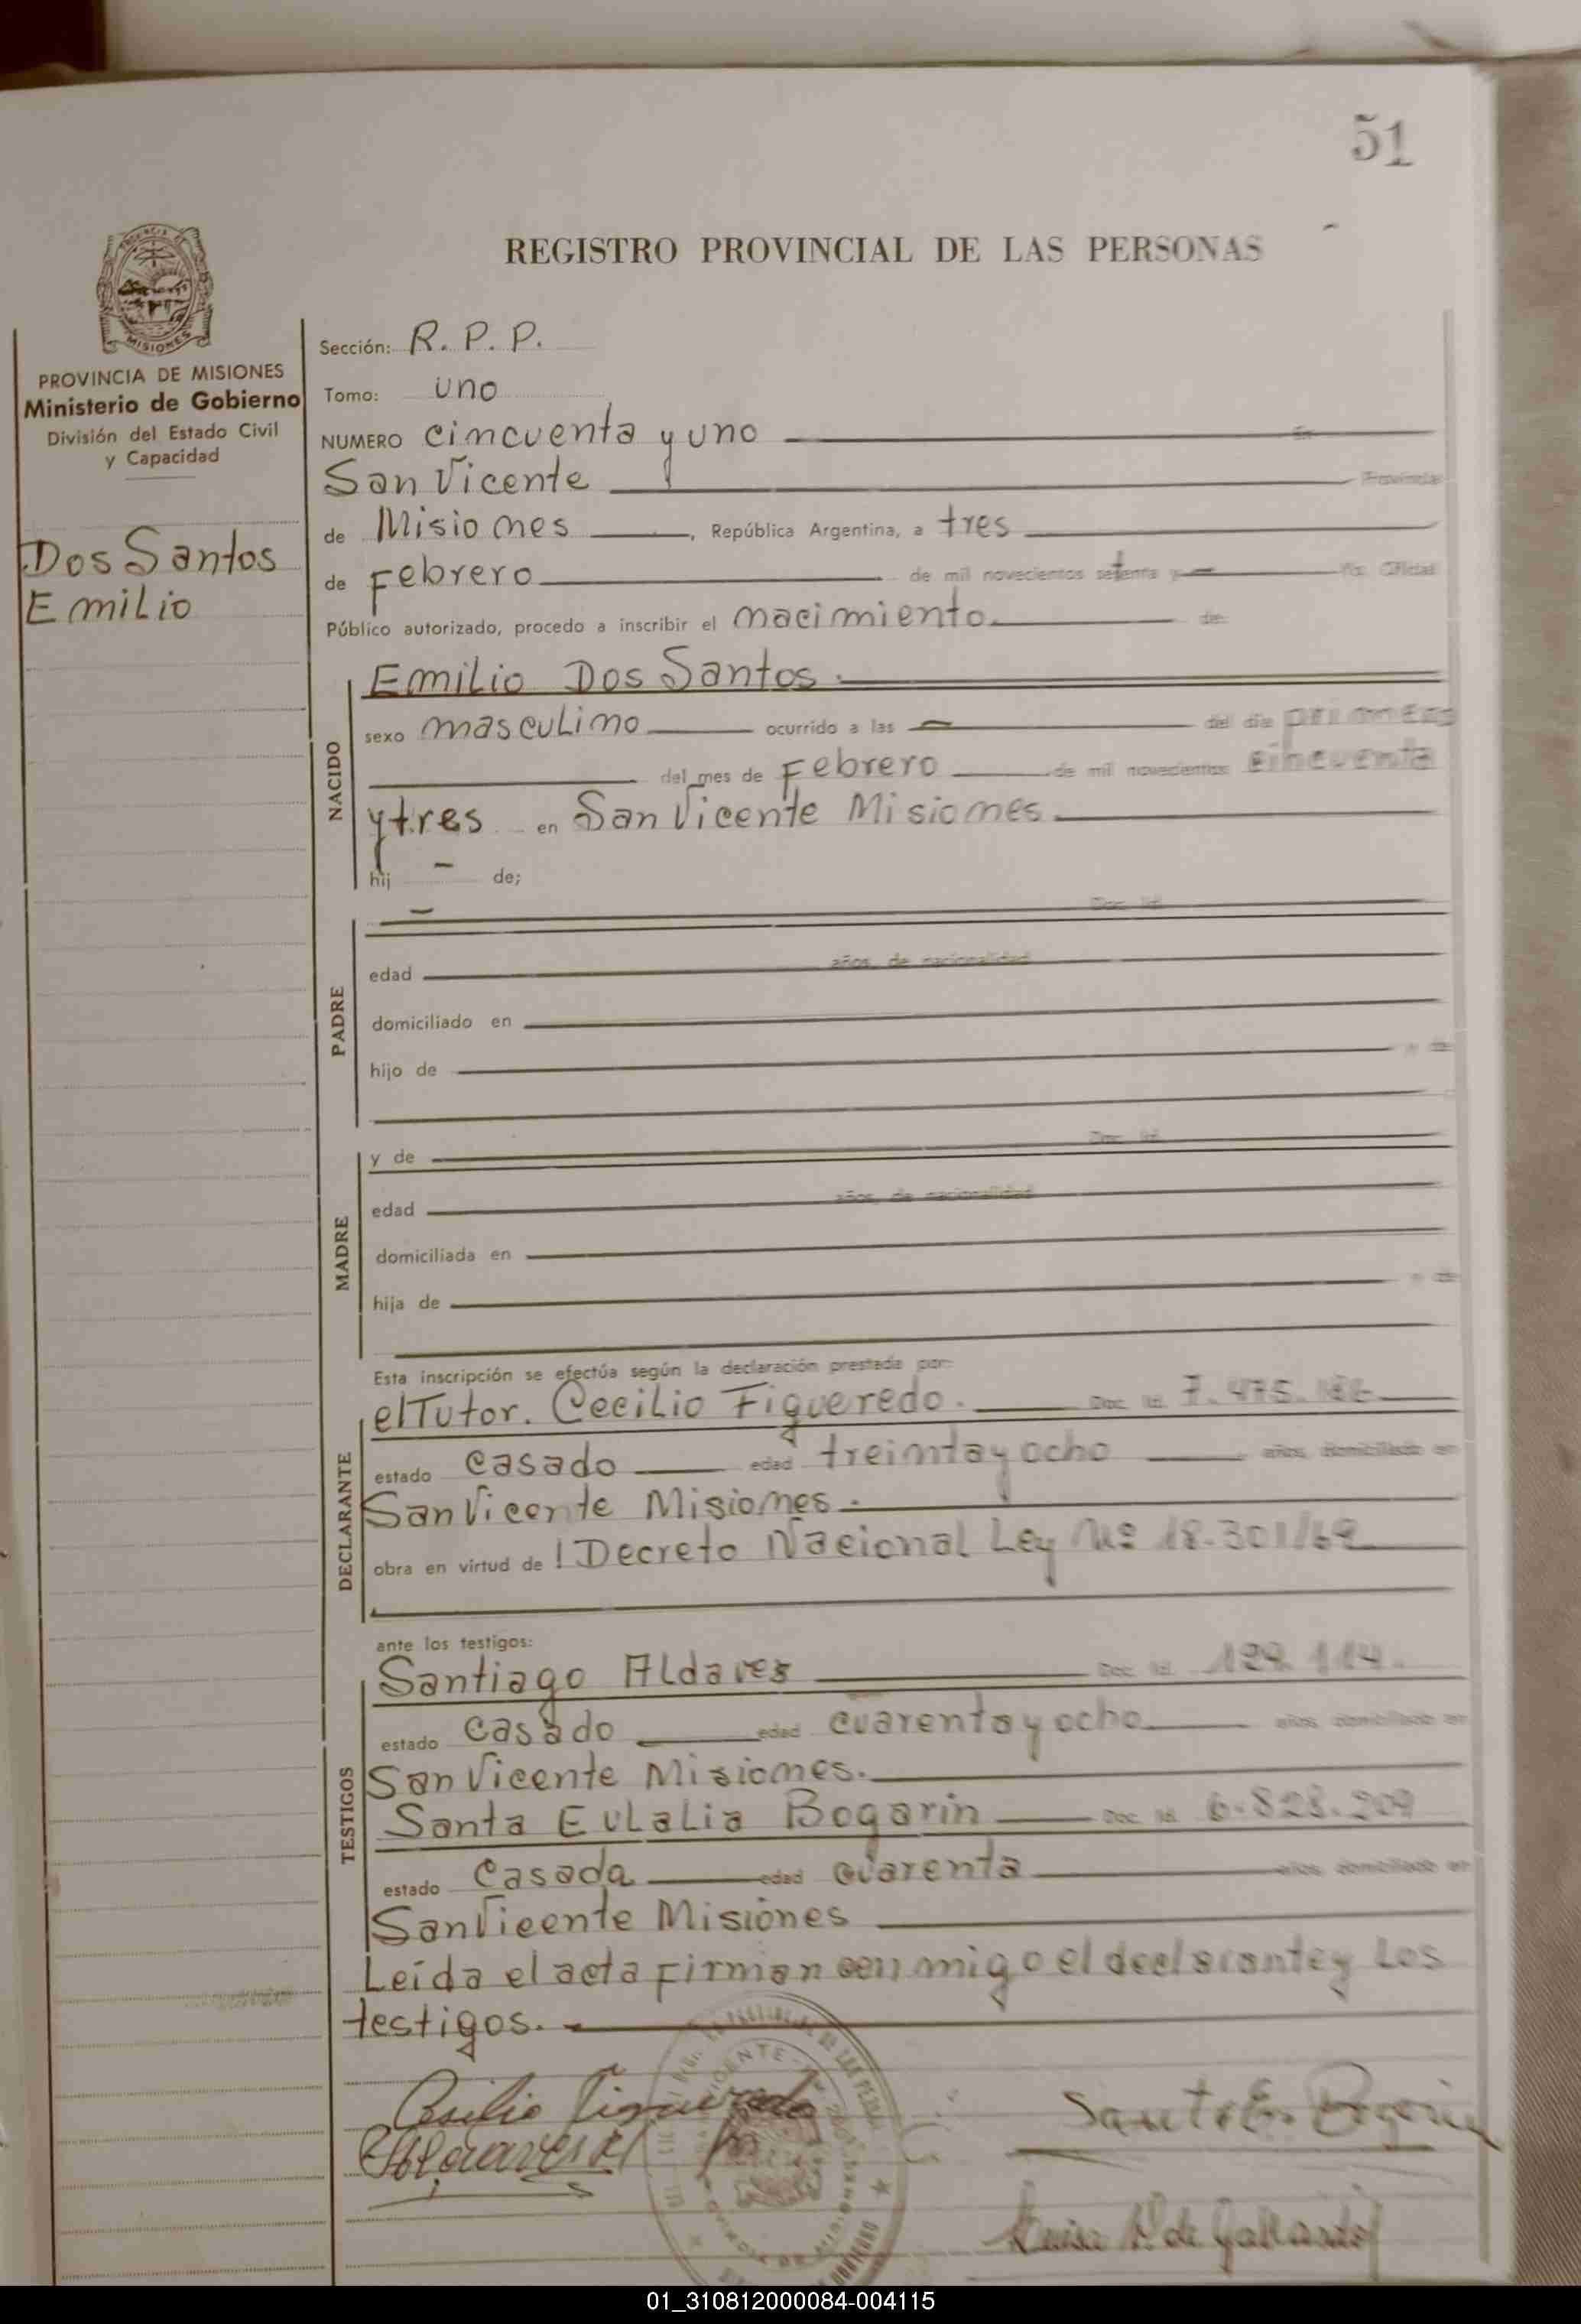 51
REGISTRO PROVINCIAL DE LAS PERSONAS
PROVINCIA DE MISIONES
Ministerio de Gobierno
División del Estado Civil
y Capacidad
Dos Santos
Emilio
Sección: R. P. P.
Tomo: uno
NUMERO cincuenta y uno En
San Vicente Provincia
de Misiones, República Argentina, a tres
de Febrero de mil novecientos setenta y Yo: Oficial
Público autorizado, procedo a inscribir el nacimiento de:
NACIDO
Emilio Dos Santos.
sexo masculino ocurrido a las — del día primero
del mes de Febrero de mil novecientos cincuenta
y tres en San Vicente Misiones.
hij — de;
PADRE
— Doc. Id.
edad años, de nacionalidad
domiciliado en
hijo de y de
MADRE
y de Doc. Id.
edad años, de nacionalidad
domiciliada en
hija de y de
Esta inscripción se efectúa según la declaración prestada por:
DECLARANTE
el Tutor. Cecilio Figueredo. Doc. Id. 7.475.186
estado casado edad treinta y ocho años, domiciliado en
San Vicente Misiones.
obra en virtud de l Decreto Nacional Ley Nº 18.301/69
ante los testigos:
TESTIGOS
Santiago Aldavez Doc. Id. 129.114.
estado casado edad cuarenta y ocho años, domiciliado en
San Vicente Misiones.
Santa Eulalia Bogarin Doc. Id. 6.823.209
estado casada edad cuarenta años, domiciliado en
San Vicente Misiones
Leída el acta firman conmigo el declarante y los
testigos.
Cesilio Figueredo
Santa E. Bogarin
Luisa de Gallardo
01_310812000084-004115